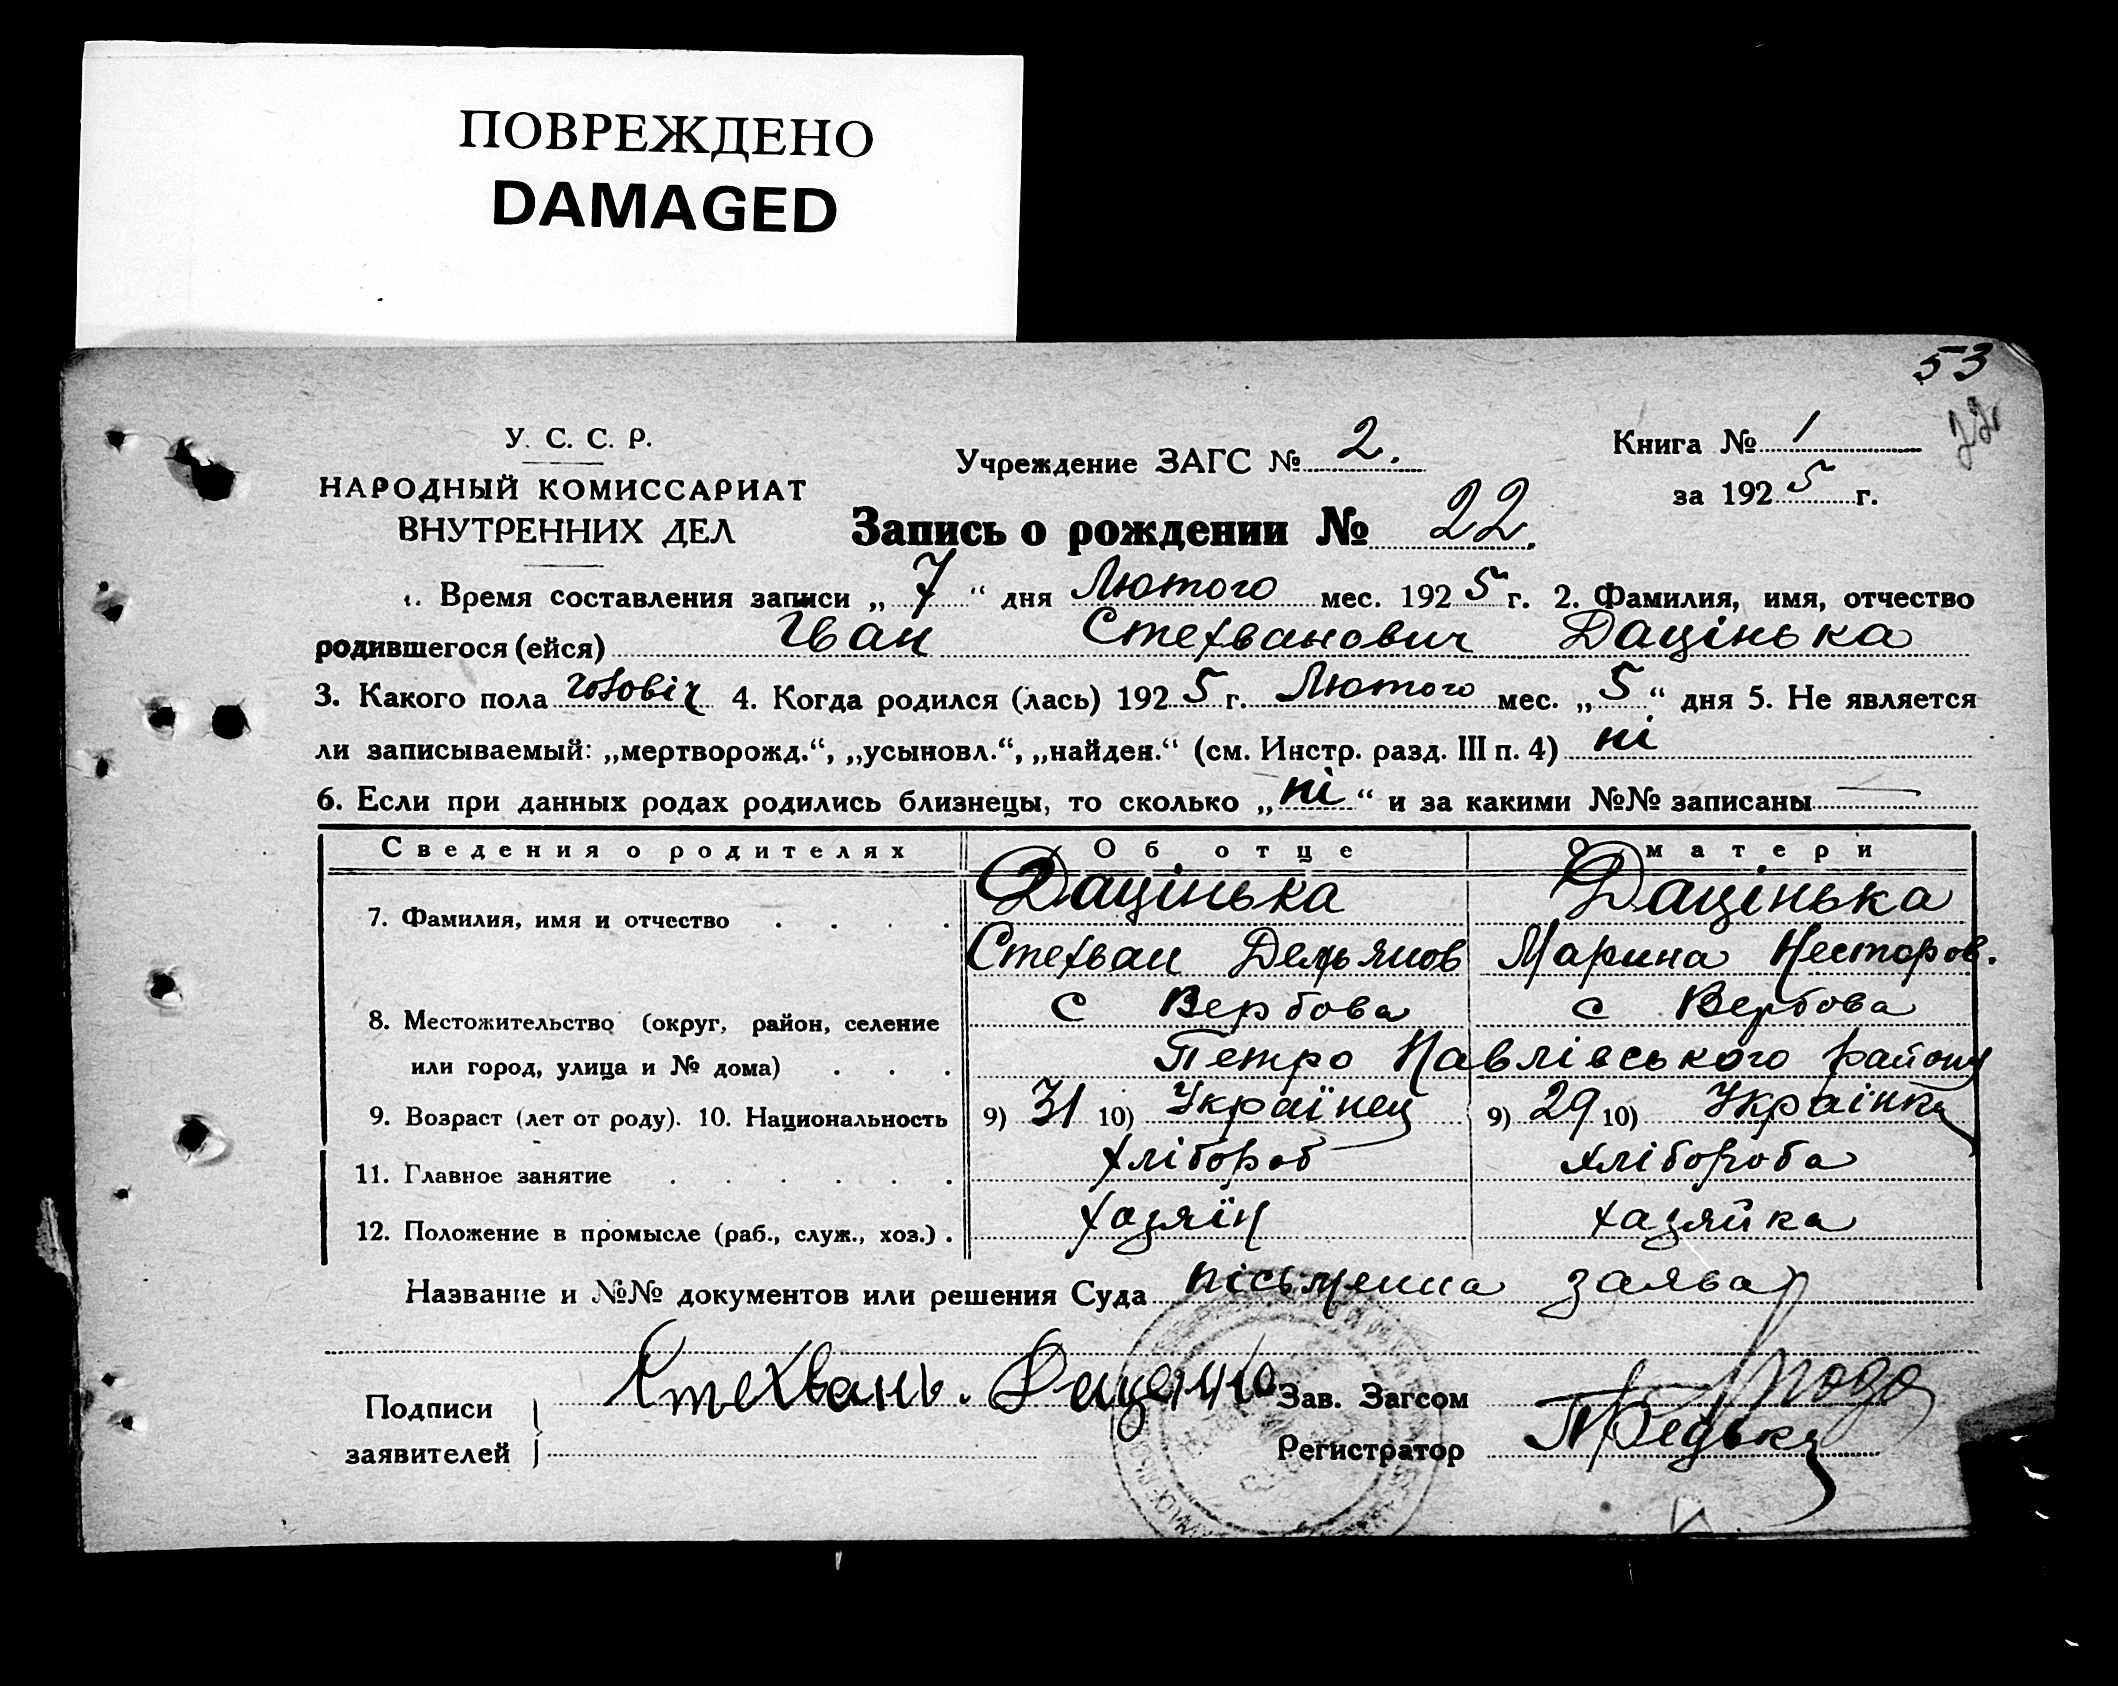 ПОВРЕЖДЕНО
DAMAGED
53
У. С. С. Р.
НАРОДНЫЙ КОМИССАРИАТ
ВНУТРЕННИХ ДЕЛ
Учреждение ЗАГС № 2.
Книга № 1
за 1925 г.
Запись о рождении № 22.
1. Время составления записи „7“ дня Лютого мес. 1925 г. 2. Фамилия, имя, отчество
родившегося (ейся) Іван Стехванович Дацінька
3. Какого пола чоловіч 4. Когда родился (лась) 1925 г. Лютого мес. „5“ дня 5. Не является
ли записываемый: „мертворожд.“, „усыновл.“, „найден.“ (см. Инстр. разд. III п. 4) ні
6. Если при данных родах родились близнецы, то сколько „ні“ и за какими №№ записаны —
Сведения о родителях Об отце О матери
7. Фамилия, имя и отчество . . . . Дацінька Дацінька
Стехван Демьянов Марина Несторов.
8. Местожительство (округ, район, селение с Вербова с Вербова
или город, улица и № дома) . . . Петро Павлівського району
9. Возраст (лет от роду). 10. Национальность 9) 31 10) Українец 9) 29 10) Украінка
11. Главное занятие . . . . . . хлібороб хлібороба
12. Положение в промысле (раб., служ., хоз.) . хазяїн хазяйка
Название и №№ документов или решения Суда пісьменна заява
Подписи
заявителей
Стехвань.
Зав. Загсом
Регистратор